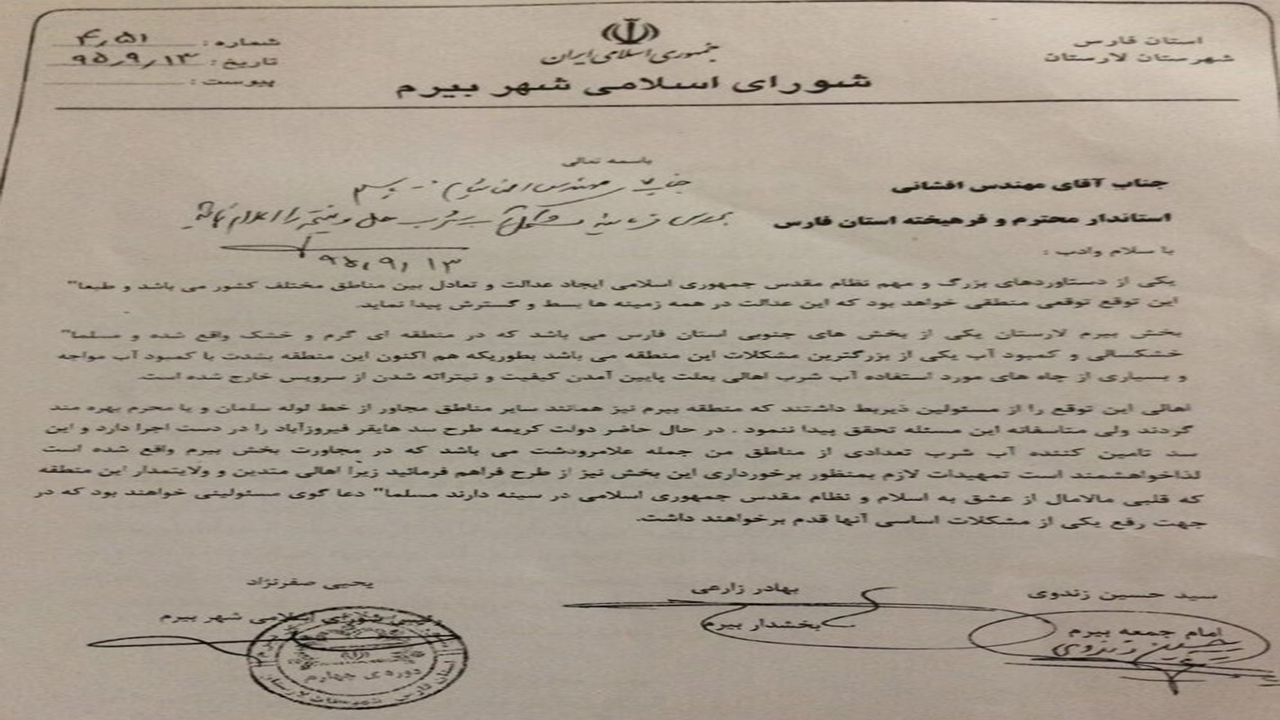 استان فارس
شهرستان لارستان
جمهوری اسلامی ایران
شورای اسلامی شهر بیرم
شماره : ۴٫۵۱
تاریخ : ۹۵٫۹٫۱۳
پیوست :
باسمه تعالی
جناب آقای مهندس افشانی
استاندار محترم و فرهیخته استان فارس
جناب مهندس
بررسی فرمائید مشکل آب شرب حل و نتیجه را اعلام نمائید
۹۵٫۹٫۱۳
با سلام وادب :
یکی از دستاوردهای بزرگ و مهم نظام مقدس جمهوری اسلامی ایجاد عدالت و تعادل بین مناطق مختلف کشور می باشد و طبعا"
این توقع توقعی منطقی خواهد بود که این عدالت در همه زمینه ها بسط و گسترش پیدا نماید.
بخش بیرم لارستان یکی از بخش های جنوبی استان فارس می باشد که در منطقه ای گرم و خشک واقع شده و مسلما"
خشکسالی و کمبود آب یکی از بزرگترین مشکلات این منطقه می باشد بطوریکه هم اکنون این منطقه بشدت با کمبود آب مواجه
و بسیاری از چاه های مورد استفاده آب شرب اهالی بعلت پایین آمدن کیفیت و نیتراته شدن از سرویس خارج شده است.
اهالی این توقع را از مسئولین ذیربط داشتند که منطقه بیرم نیز همانند سایر مناطق مجاور از خط لوله سلمان و یا محرم بهره مند
گردند ولی متاسفانه این مسئله تحقق پیدا ننمود . در حال حاضر دولت کریمه طرح سد هایقر فیروزآباد را در دست اجرا دارد و این
سد تامین کننده آب شرب تعدادی از مناطق من جمله علامرودشت می باشد که در مجاورت بخش بیرم واقع شده است
لذاخواهشمند است تمهیدات لازم بمنظور برخورداری این بخش نیز از طرح فراهم فرمائید زیرا اهالی متدین و ولایتمدار این منطقه
که قلبی مالامال از عشق به اسلام و نظام مقدس جمهوری اسلامی در سینه دارند مسلما" دعا گوی مسئولینی خواهند بود که در
جهت رفع یکی از مشکلات اساسی آنها قدم برخواهند داشت.
سید حسین زندوی
امام جمعه بیرم
سید حسین زندوی
بهادر زارعی
بخشدار بیرم
یحیی صفرنژاد
رئیس شورای اسلامی شهر بیرم
دوره ی چهارم
استان فارس - شهرستان لارستان